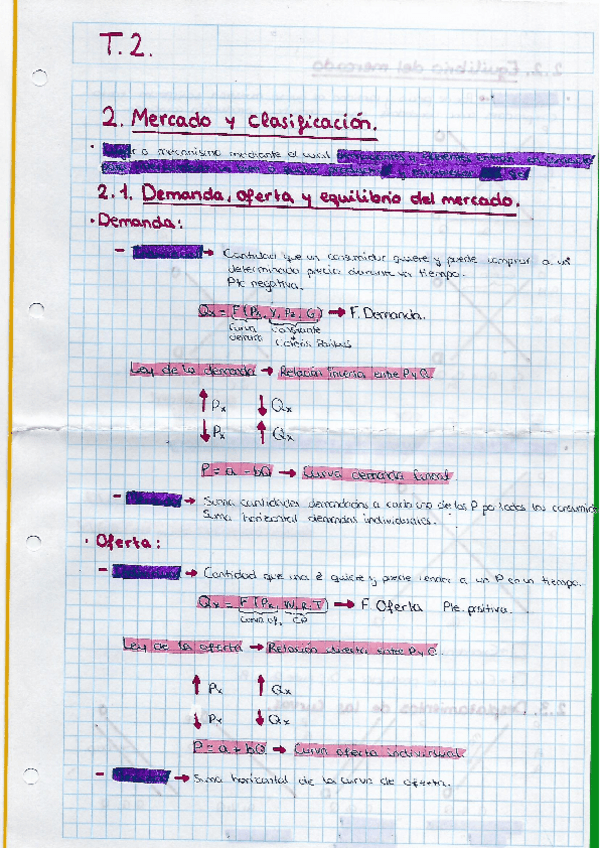 T.2.
2. Mercado y clasificación.
· mecanismo mediante el cual
2.1. Demanda, oferta y equilibrio del mercado.
· Demanda:
- → Cantidad que un consumidor quiere y puede comprar a un
determinado precio durante un tiempo.
Pte negativa.
Qx = F(Px, Y, Pz, G) → F. Demanda.
Curva constante
demanda Ceteris Paribus
Ley de la demanda → Relación inversa entre P y Q.
↑ Px ↓ Qx
↓ Px ↑ Qx
P = a - bQ → Curva demanda lineal
- → Suma cantidades demandadas a cada uno de los P por todos los
Suma horizontal demandas individuales.
· Oferta:
- → Cantidad que una quiere y puede vender a un P en un tiempo.
Qx = F(Px, W, R, T) → F Oferta Pte. positiva.
Curva of. CP
Ley de la oferta → Relación directa entre P y Q.
↑ Px ↑ Qx
↓ Px ↓ Qx
P = a + bQ → Curva oferta individual
- → Suma horizontal de la curva de oferta.